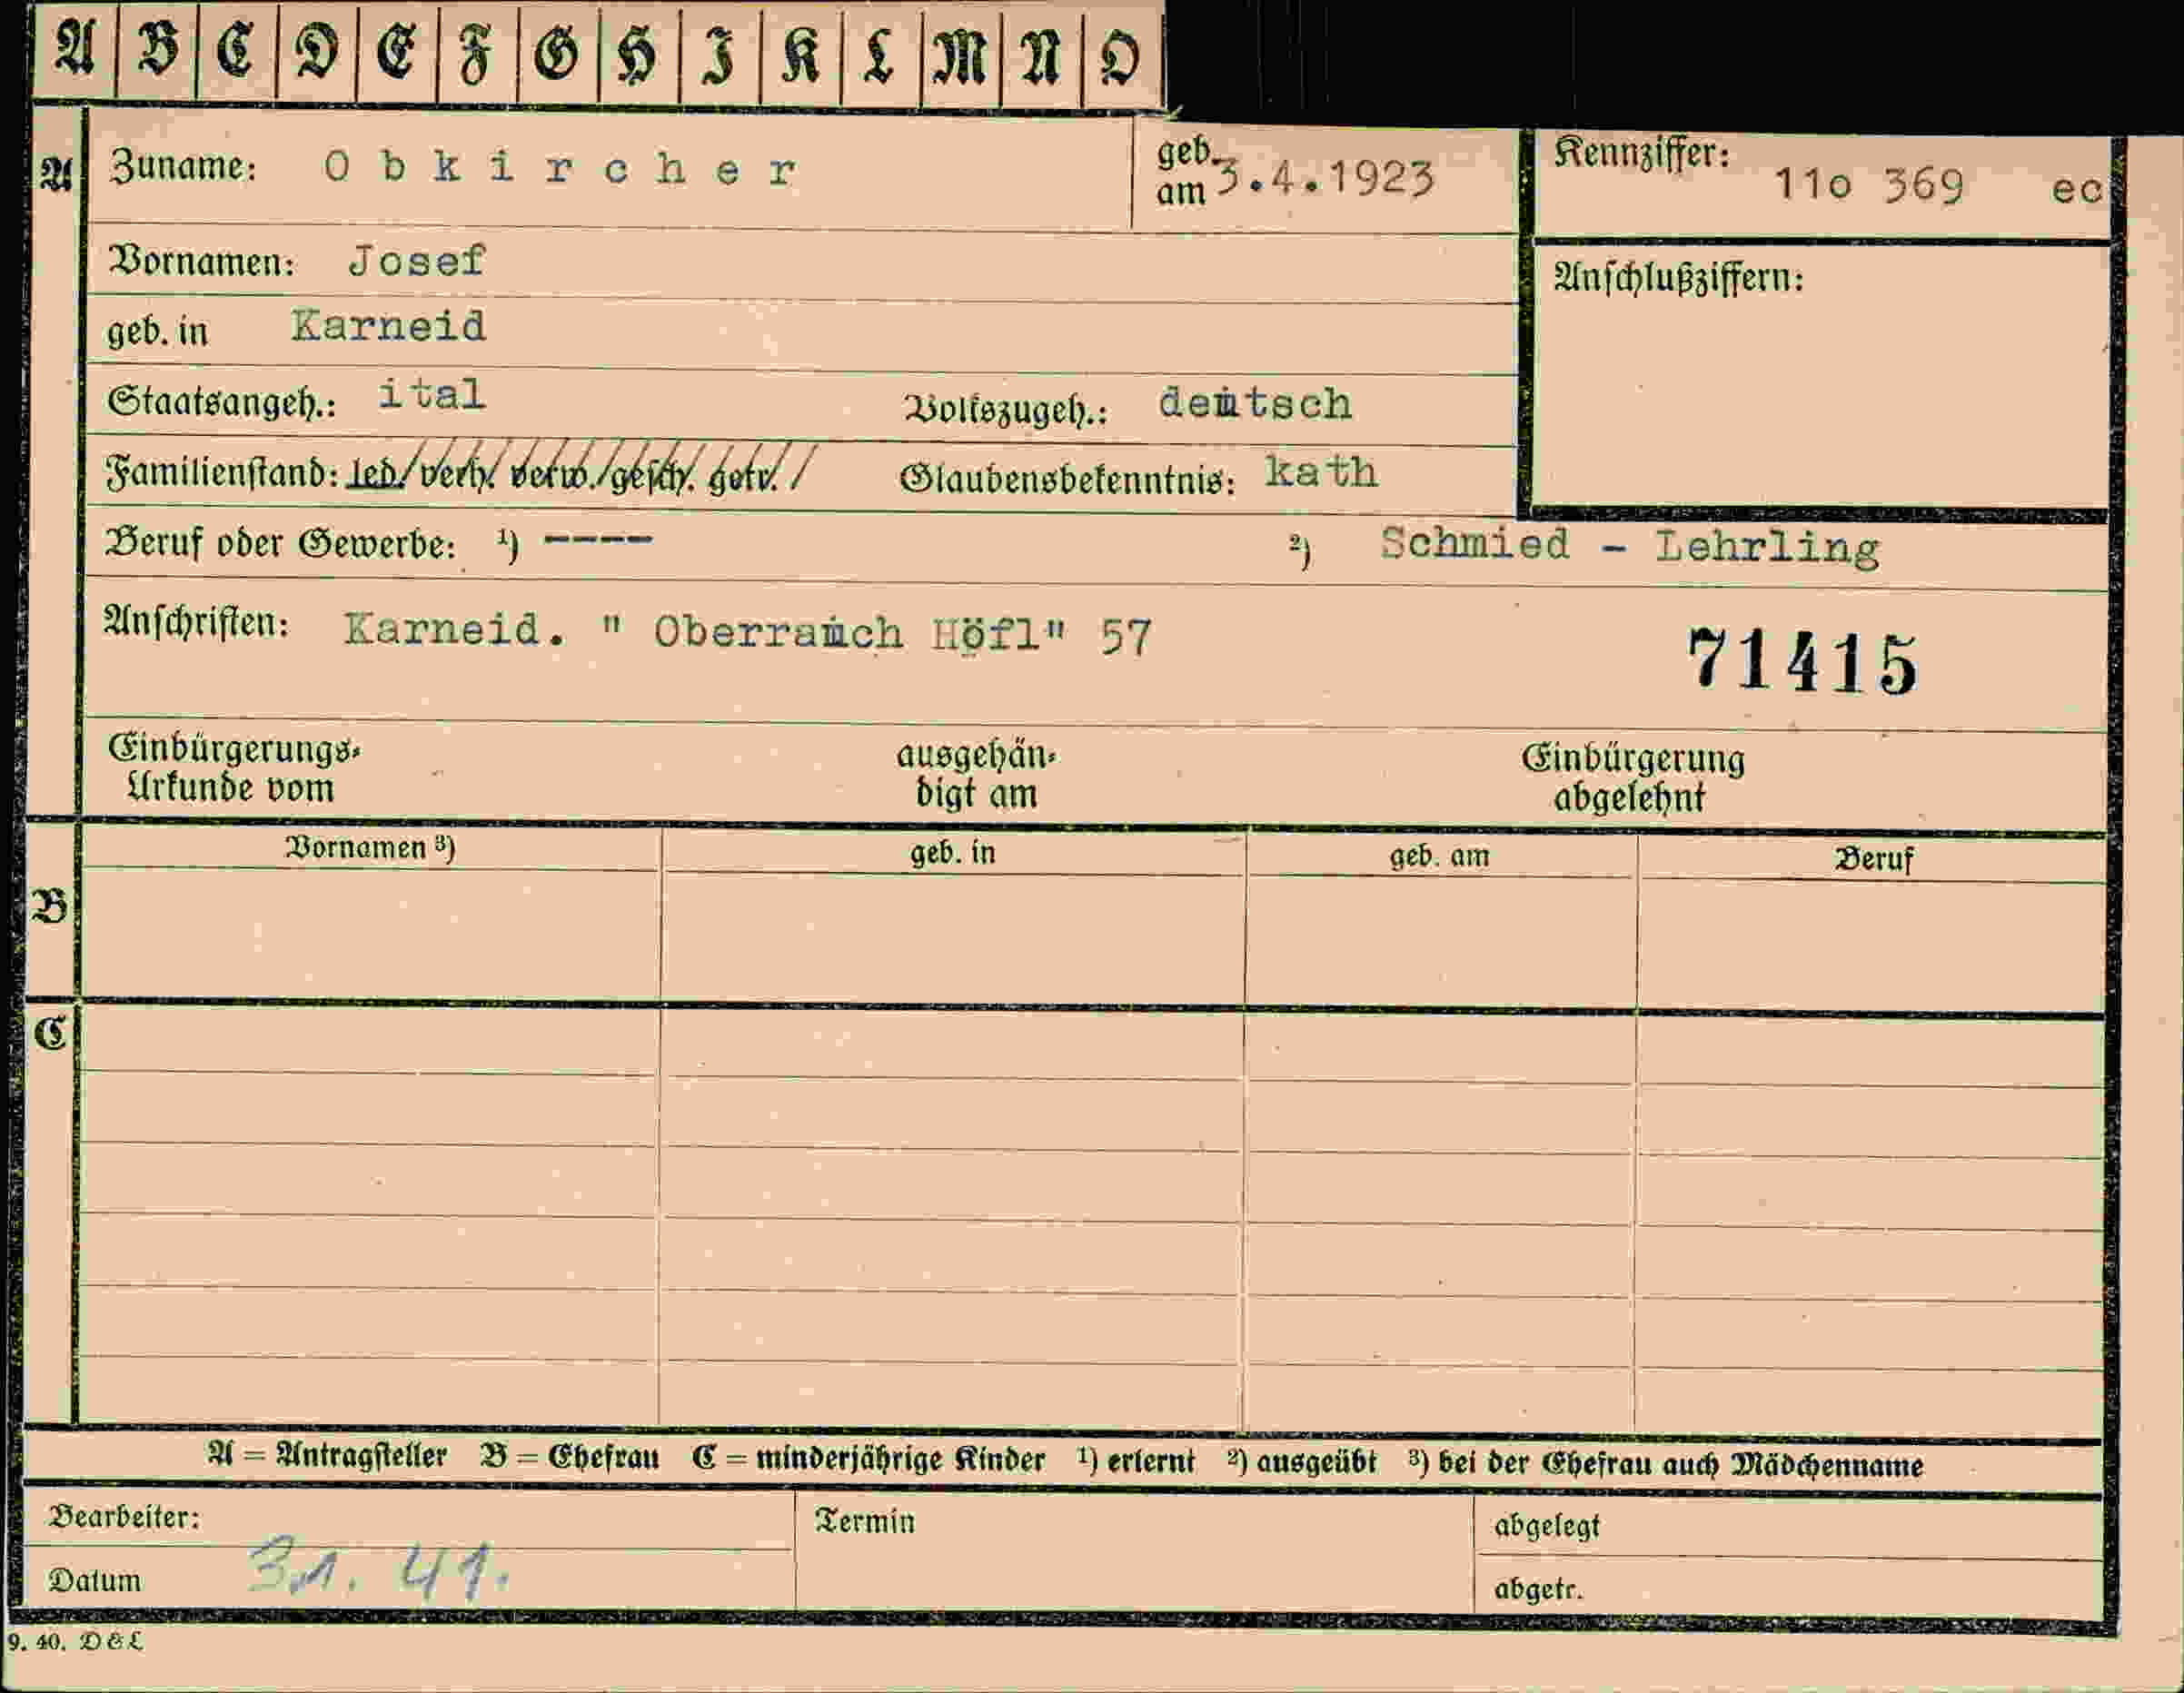 A B C D E F G H I K L M N O
A Zuname: Obkircher geb. am 3.4.1923 Kennziffer: 11o 369 ec
Vornamen: Josef
Anschlußziffern:
geb. in Karneid
Staatsangeh.: ital Volkszugeh.: deutsch
Familienstand: led./verh./verw./gesch. getr./ Glaubensbekenntnis: kath
Beruf oder Gewerbe: 1) ---- 2) Schmied - Lehrling
Anschriften: Karneid. " Oberrauch Höfl" 57
71415
Einbürgerungs-Urkunde vom ausgehändigt am Einbürgerung abgelehnt
Vornamen 3) geb. in geb. am Beruf
B
C
A = Antragsteller B = Ehefrau C = minderjährige Kinder 1) erlernt 2) ausgeübt 3) bei der Ehefrau auch Mädchenname
Bearbeiter: Termin abgelegt
Datum 3.1. 41. abgetr.
9. 40. D & L